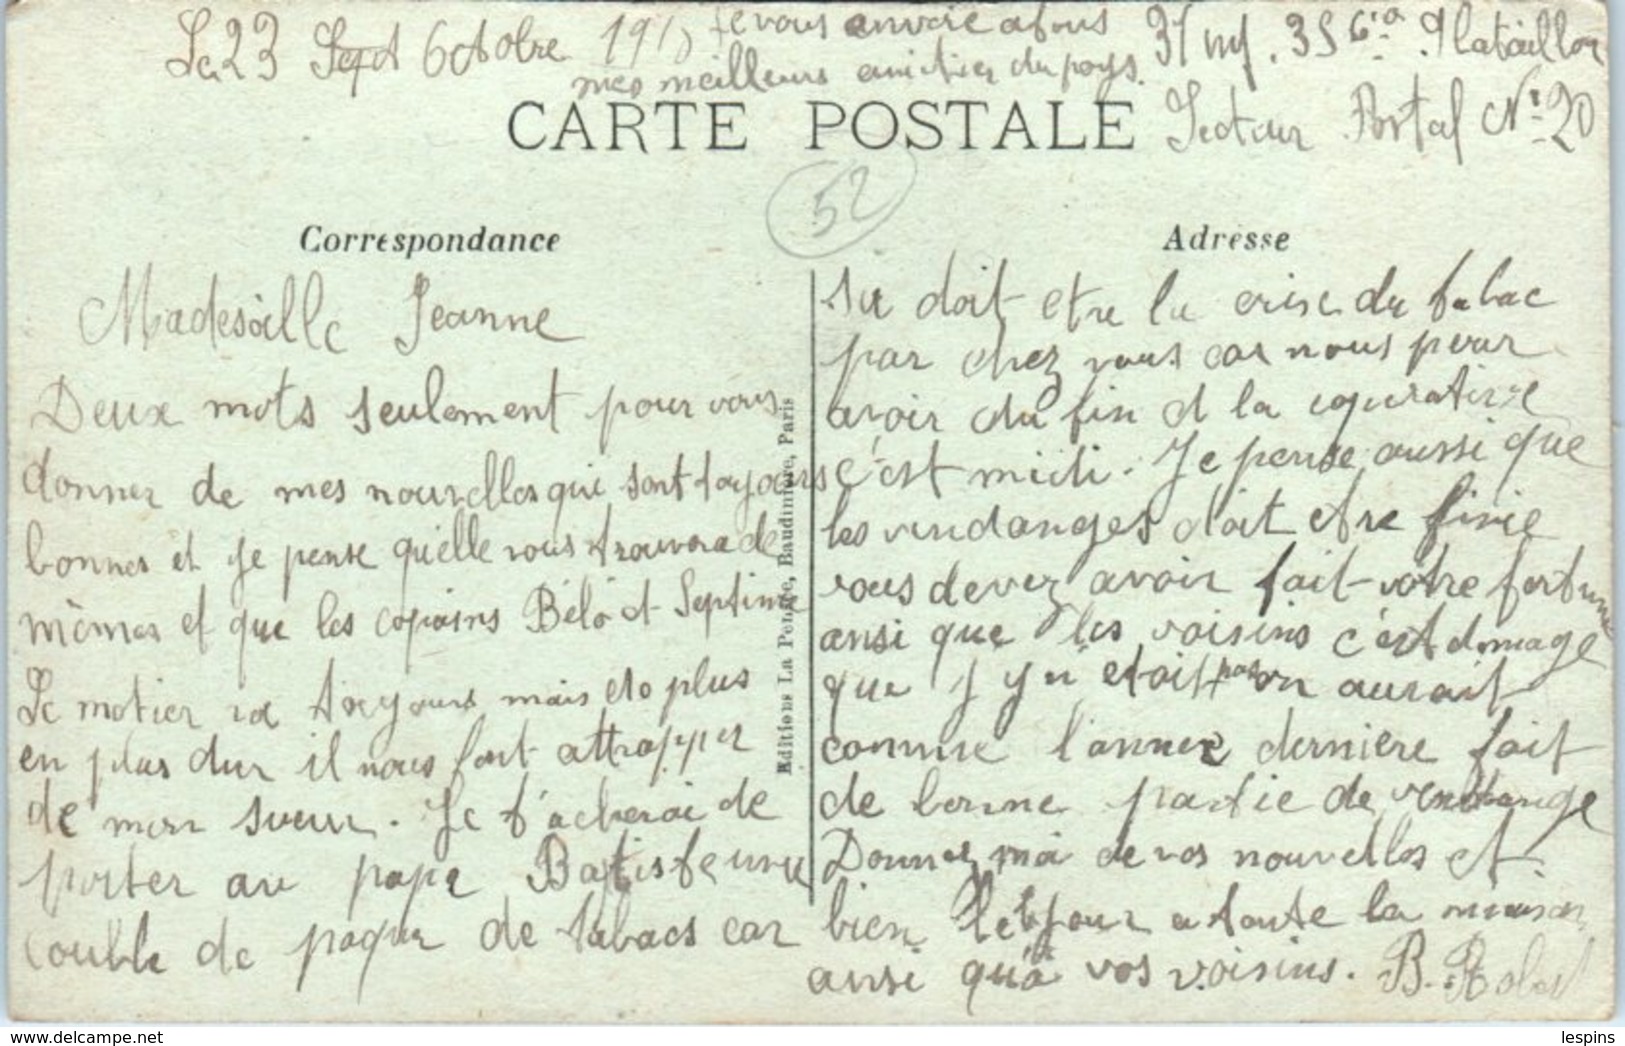 Le 23 Sept Octobre 191 je vous envoie a tous
mes meilleurs amitier du pays.
37 inf. 35 Cie 9 Bataillon
Secteur Postal N° 20
CARTE POSTALE
52
Correspondance
Madesoille Jeanne
Deux mots seulement pour vous
donner de mes nouvelles qui sont toujours
bonnes et je pense qu'elle vous trouvera de
mèmes et que les copains Bélo et Septime
Le motier va toujours mais de plus
en plus dur il nous font attrapper
de mon sueur. Je t'acherai de
porter au pape Batiste une
couble de paque de tabacs car
Editions La Pensée, Baudinière, Paris
Adresse
su doit etre la crise du tabac
par chez vous car nous pour
avoir du fin d la coperative
c'est midi. Je pense aussi que
les vendanges doit etre finie
vous devez avoir fait votre fortune
ansi que les voisins c'est domage
que j y n etait pas on aurait
comme l'annee derniere fait
de bonne partie de vendange
Donnez moi de vos nouvelles et
bien le bjour a toute la maison
ansi qu'à vos voisins. B. Robert
lespins